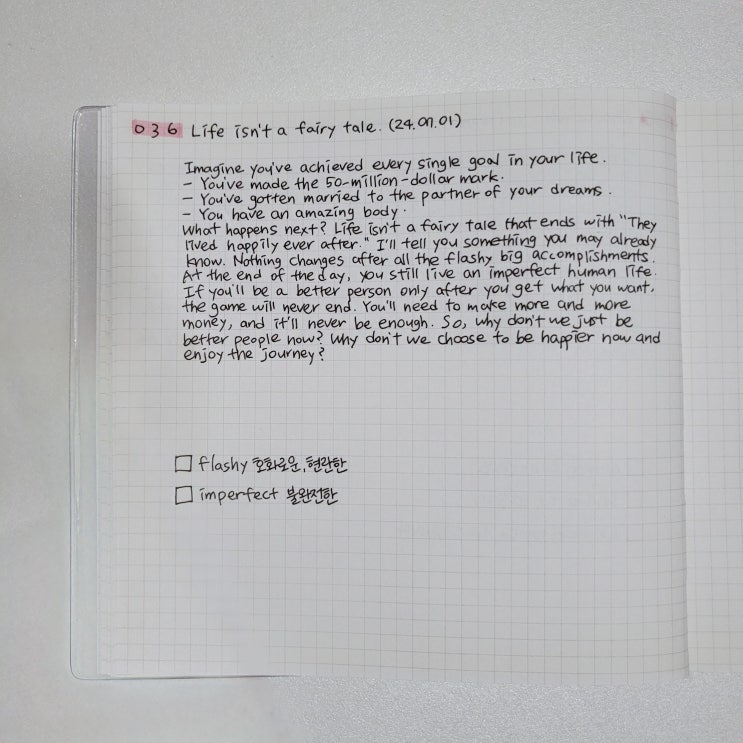 036 Life isn't a fairy tale. (24.07.01)
Imagine you've achieved every single goal in your life.
- You've made the 50-million-dollar mark.
- You've gotten married to the partner of your dreams.
- You have an amazing body.
What happens next? Life isn't a fairy tale that ends with "They
lived happily ever after." I'll tell you something you may already
know. Nothing changes after all the flashy big accomplishments.
At the end of the day, you still live an imperfect human life.
If you'll be a better person only after you get what you want,
the game will never end. You'll need to make more and more
money, and it'll never be enough. So, why don't we just be
better people now? Why don't we choose to be happier now and
enjoy the journey?
flashy 호화로운, 현란한
imperfect 불완전한